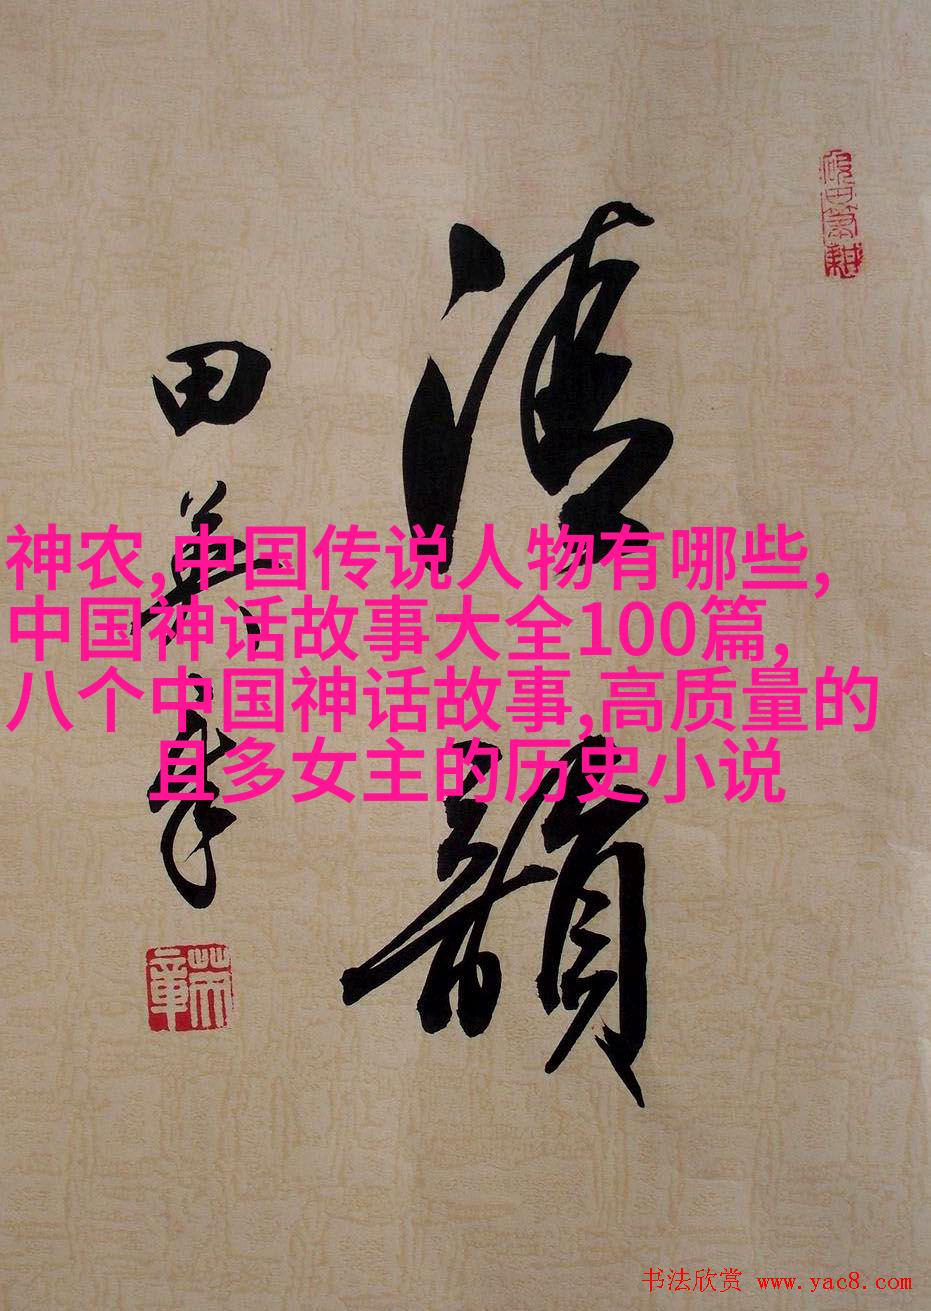 清韻
田英章
英章
神农,中国传说人物有哪些,
中国神话故事大全100篇,
八个中国神话故事,高质量的
且多女主的历史小说
书法欣赏 www.yac8.com